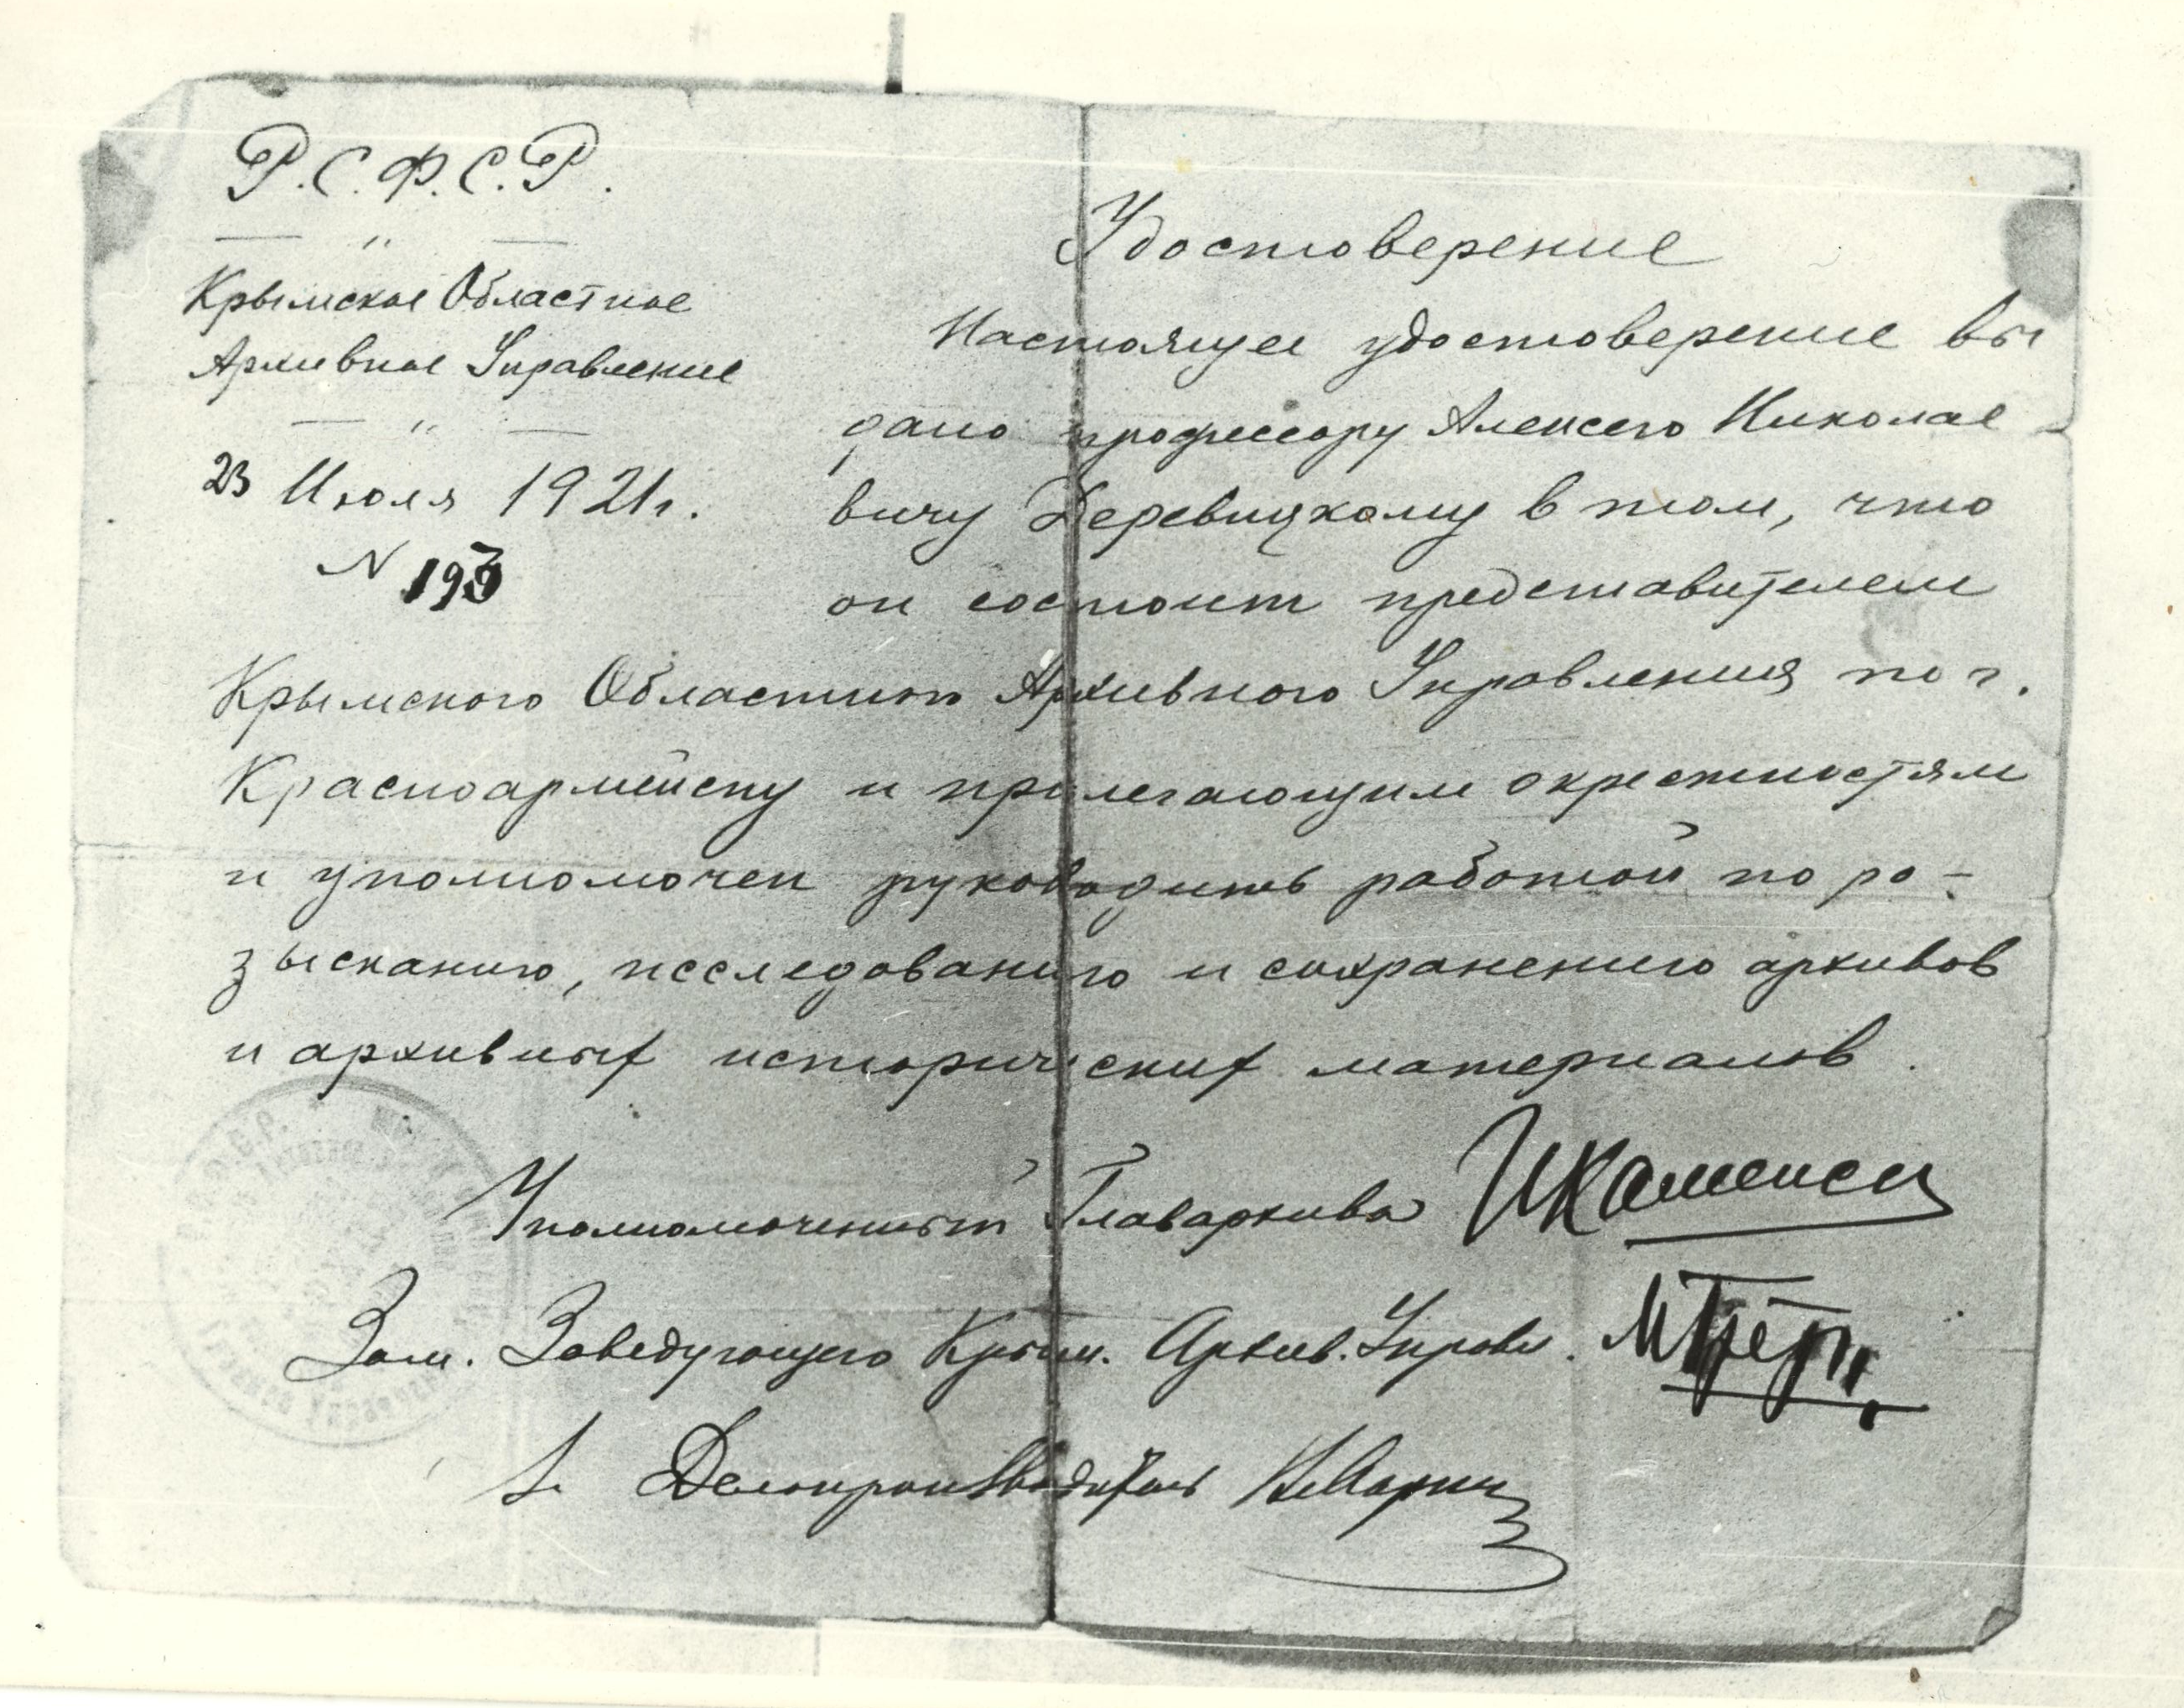 Р.С.Ф.С.Р.
— " —
Крымское Областное
Архивное Управление
— " —
23 Июля 1921 г.
N 193
Удостоверение
Настоящее удостоверение вы
дано профессору Алексею Николае-
вичу Деревицкому в том, что
он состоит представителем
Крымского Областного Архивного Управления по г.
Красноармейску и прилегающим окрестностям
и уполномочен руководить работой по ро-
зысканию, исследованию и сохранению архивов
и архивных исторических материалов.
Уполномоченный Главархива
Зам. Заведующего Крым. Архив. Управл.
Делопроизводитель